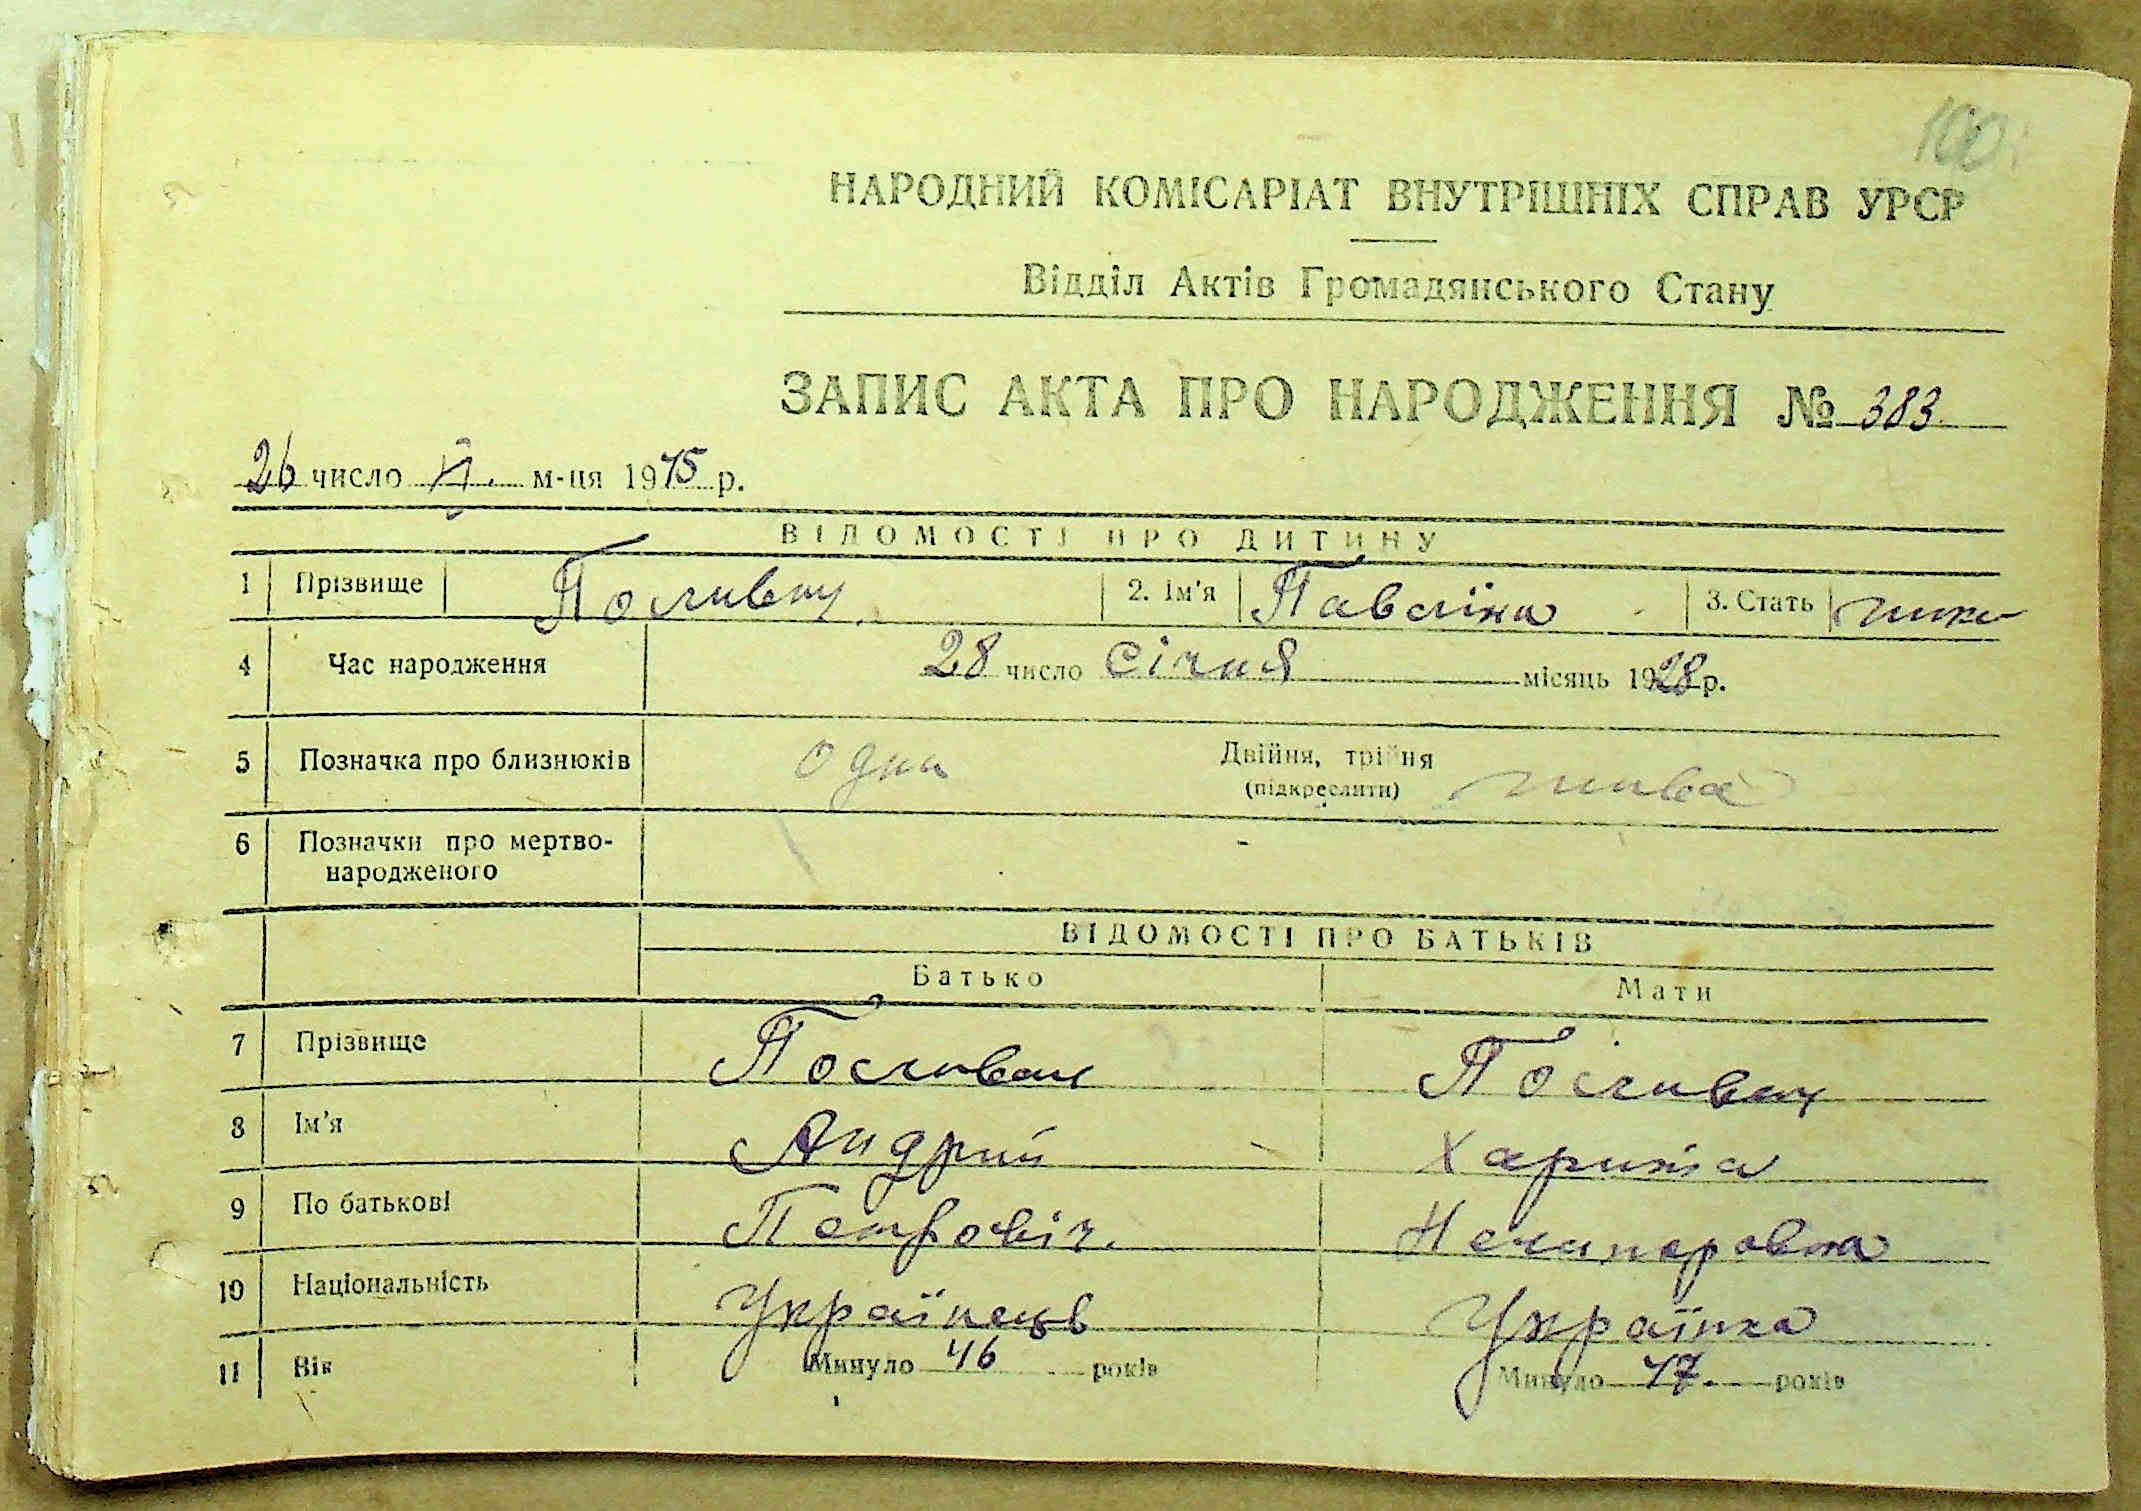 100
НАРОДНИЙ КОМІСАРІАТ ВНУТРІШНІХ СПРАВ УРСР
Відділ Актів Громадянського Стану
ЗАПИС АКТА ПРО НАРОДЖЕННЯ № 383.
26 число м-ця 1945 р.
ВІДОМОСТІ ПРО ДИТИНУ
1 Прізвище Поливяч 2. Ім'я Павліна 3. Стать жіноч
4 Час народження 28 число Січня місяць 1928 р.
5 Позначка про близнюків одна Двійня, трійня
(підкреслити) жива
6 Позначки про мертво-
народженого
ВІДОМОСТІ ПРО БАТЬКІВ
Батько Мати
7 Прізвище Поливач Поливач
8 Ім'я Андрий Харита
9 По батькові Петровіч. Нечипоровна
10 Національність Українець Українка
11 Вік Минуло 46 років Минуло 47. років